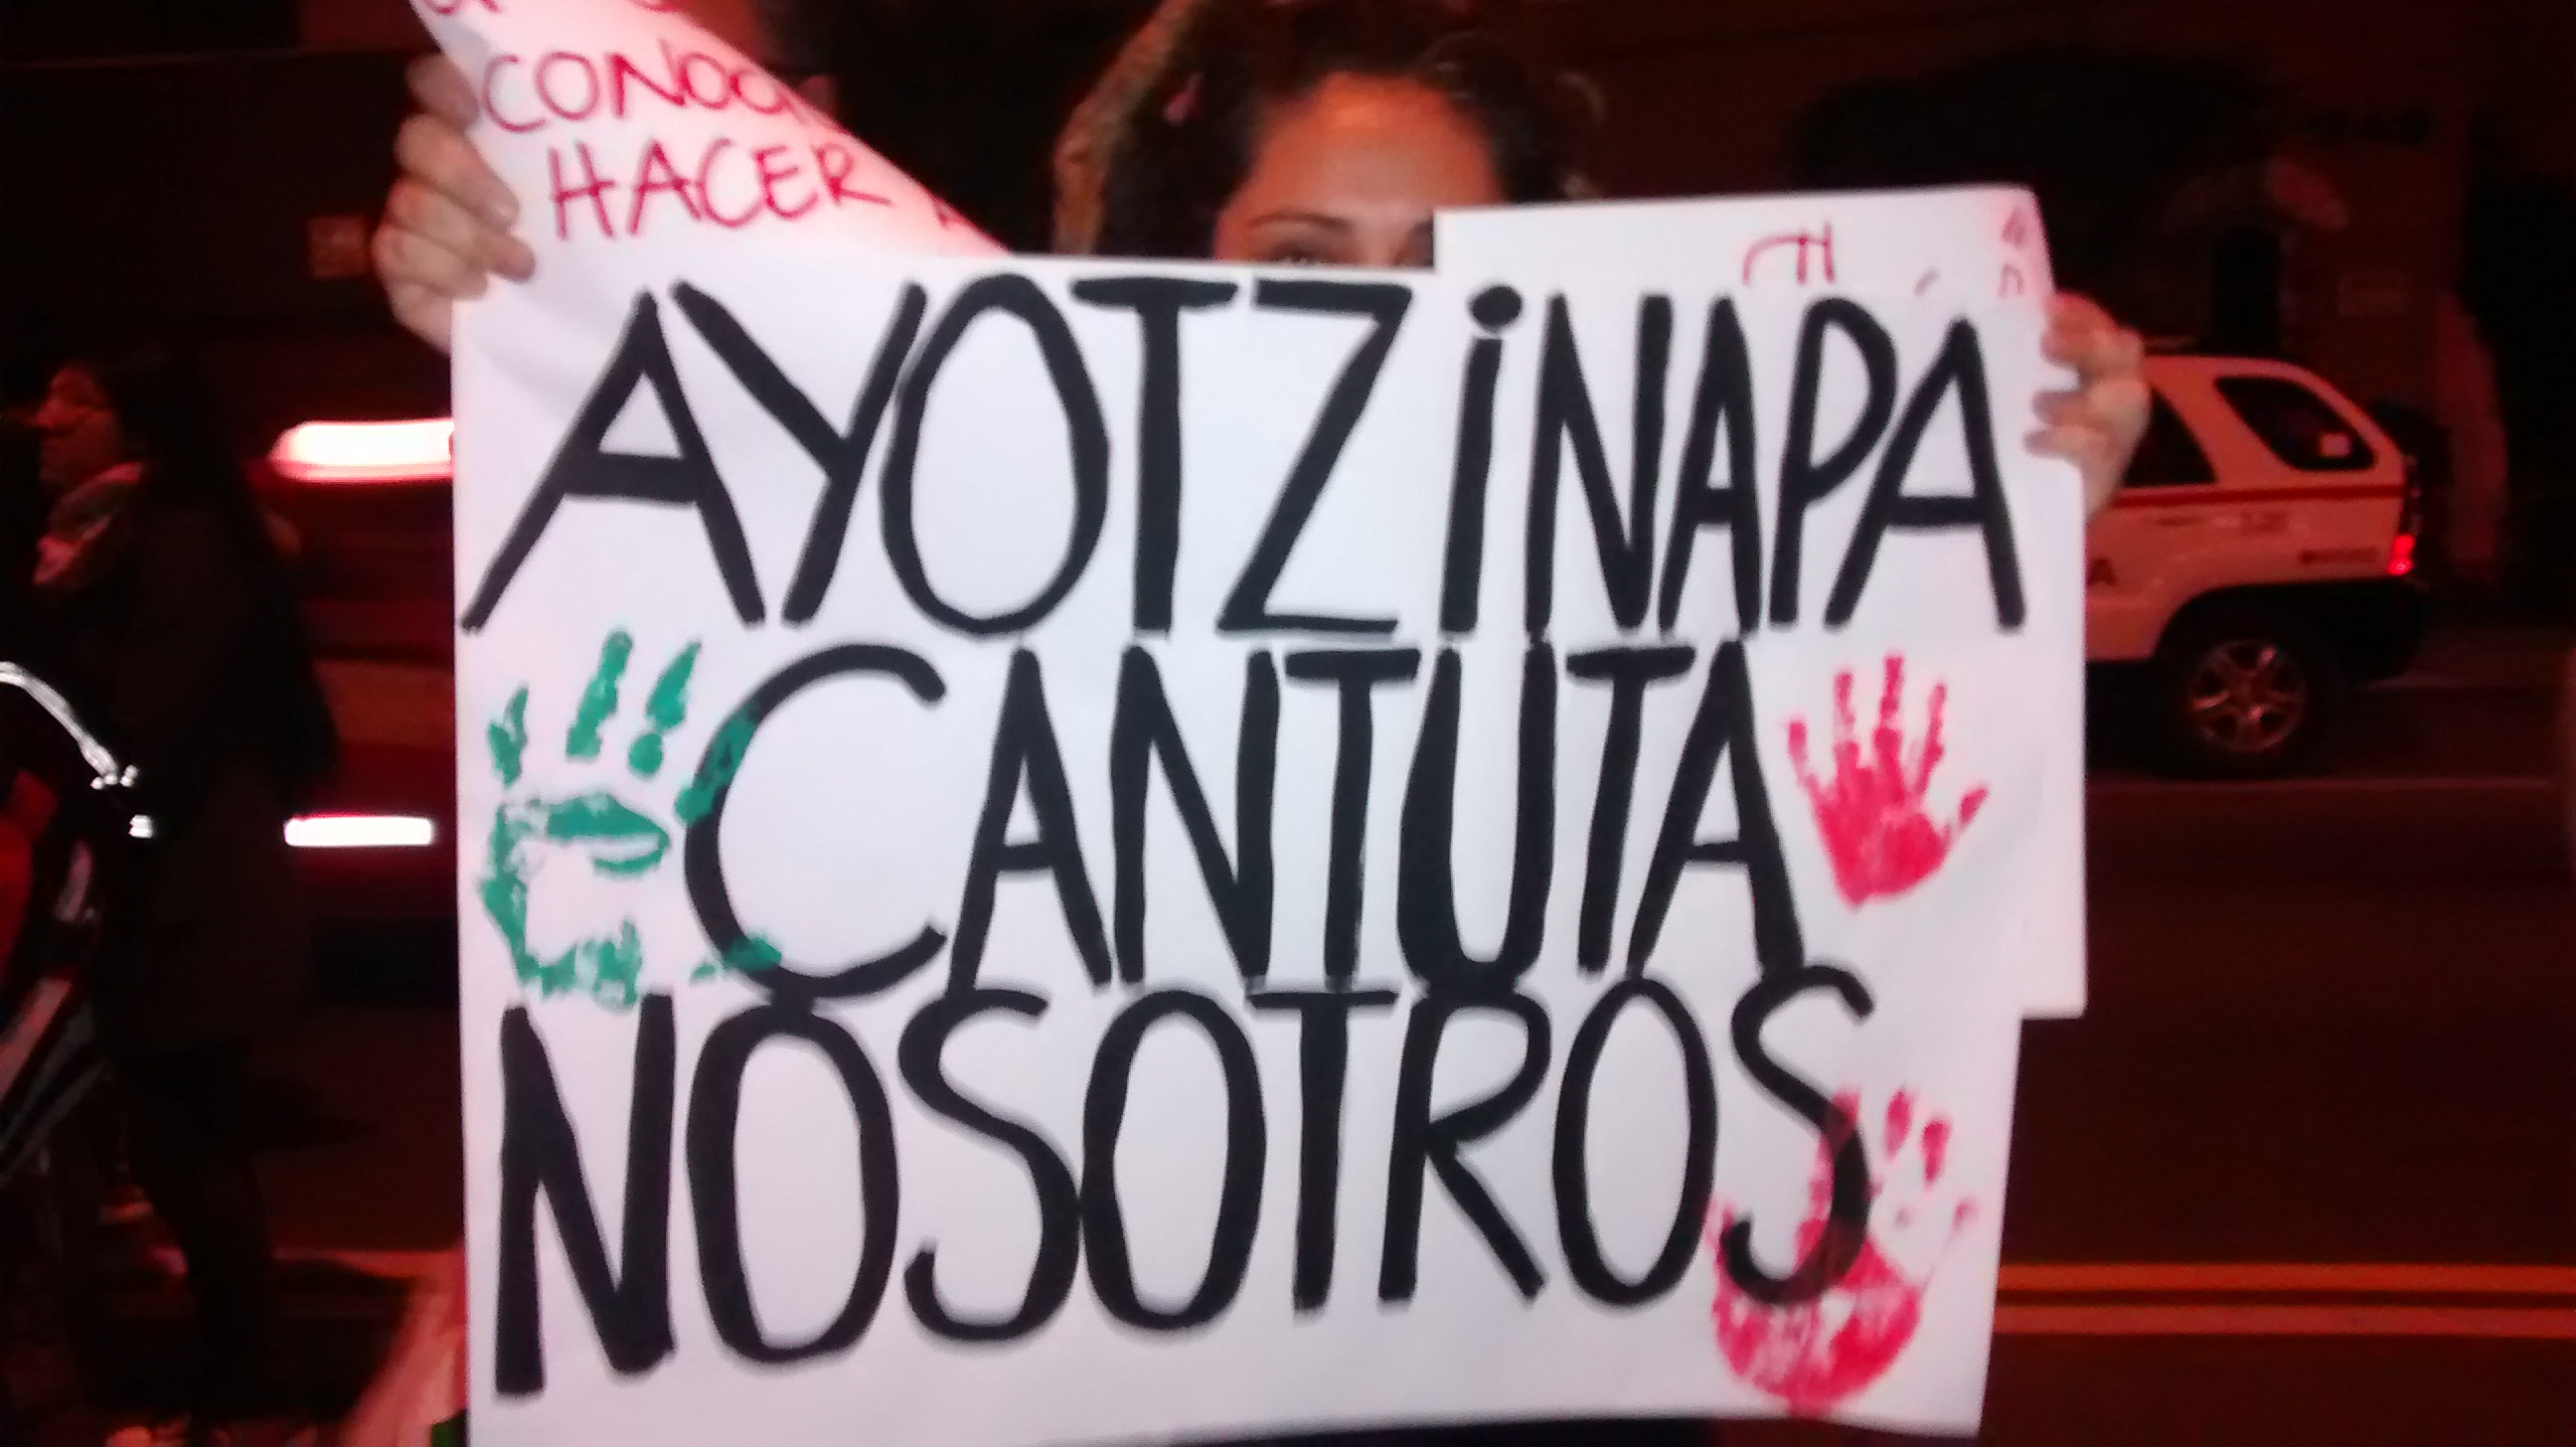 HACER
AYOTZiNAPA
CANTUTA
NOSOTROS